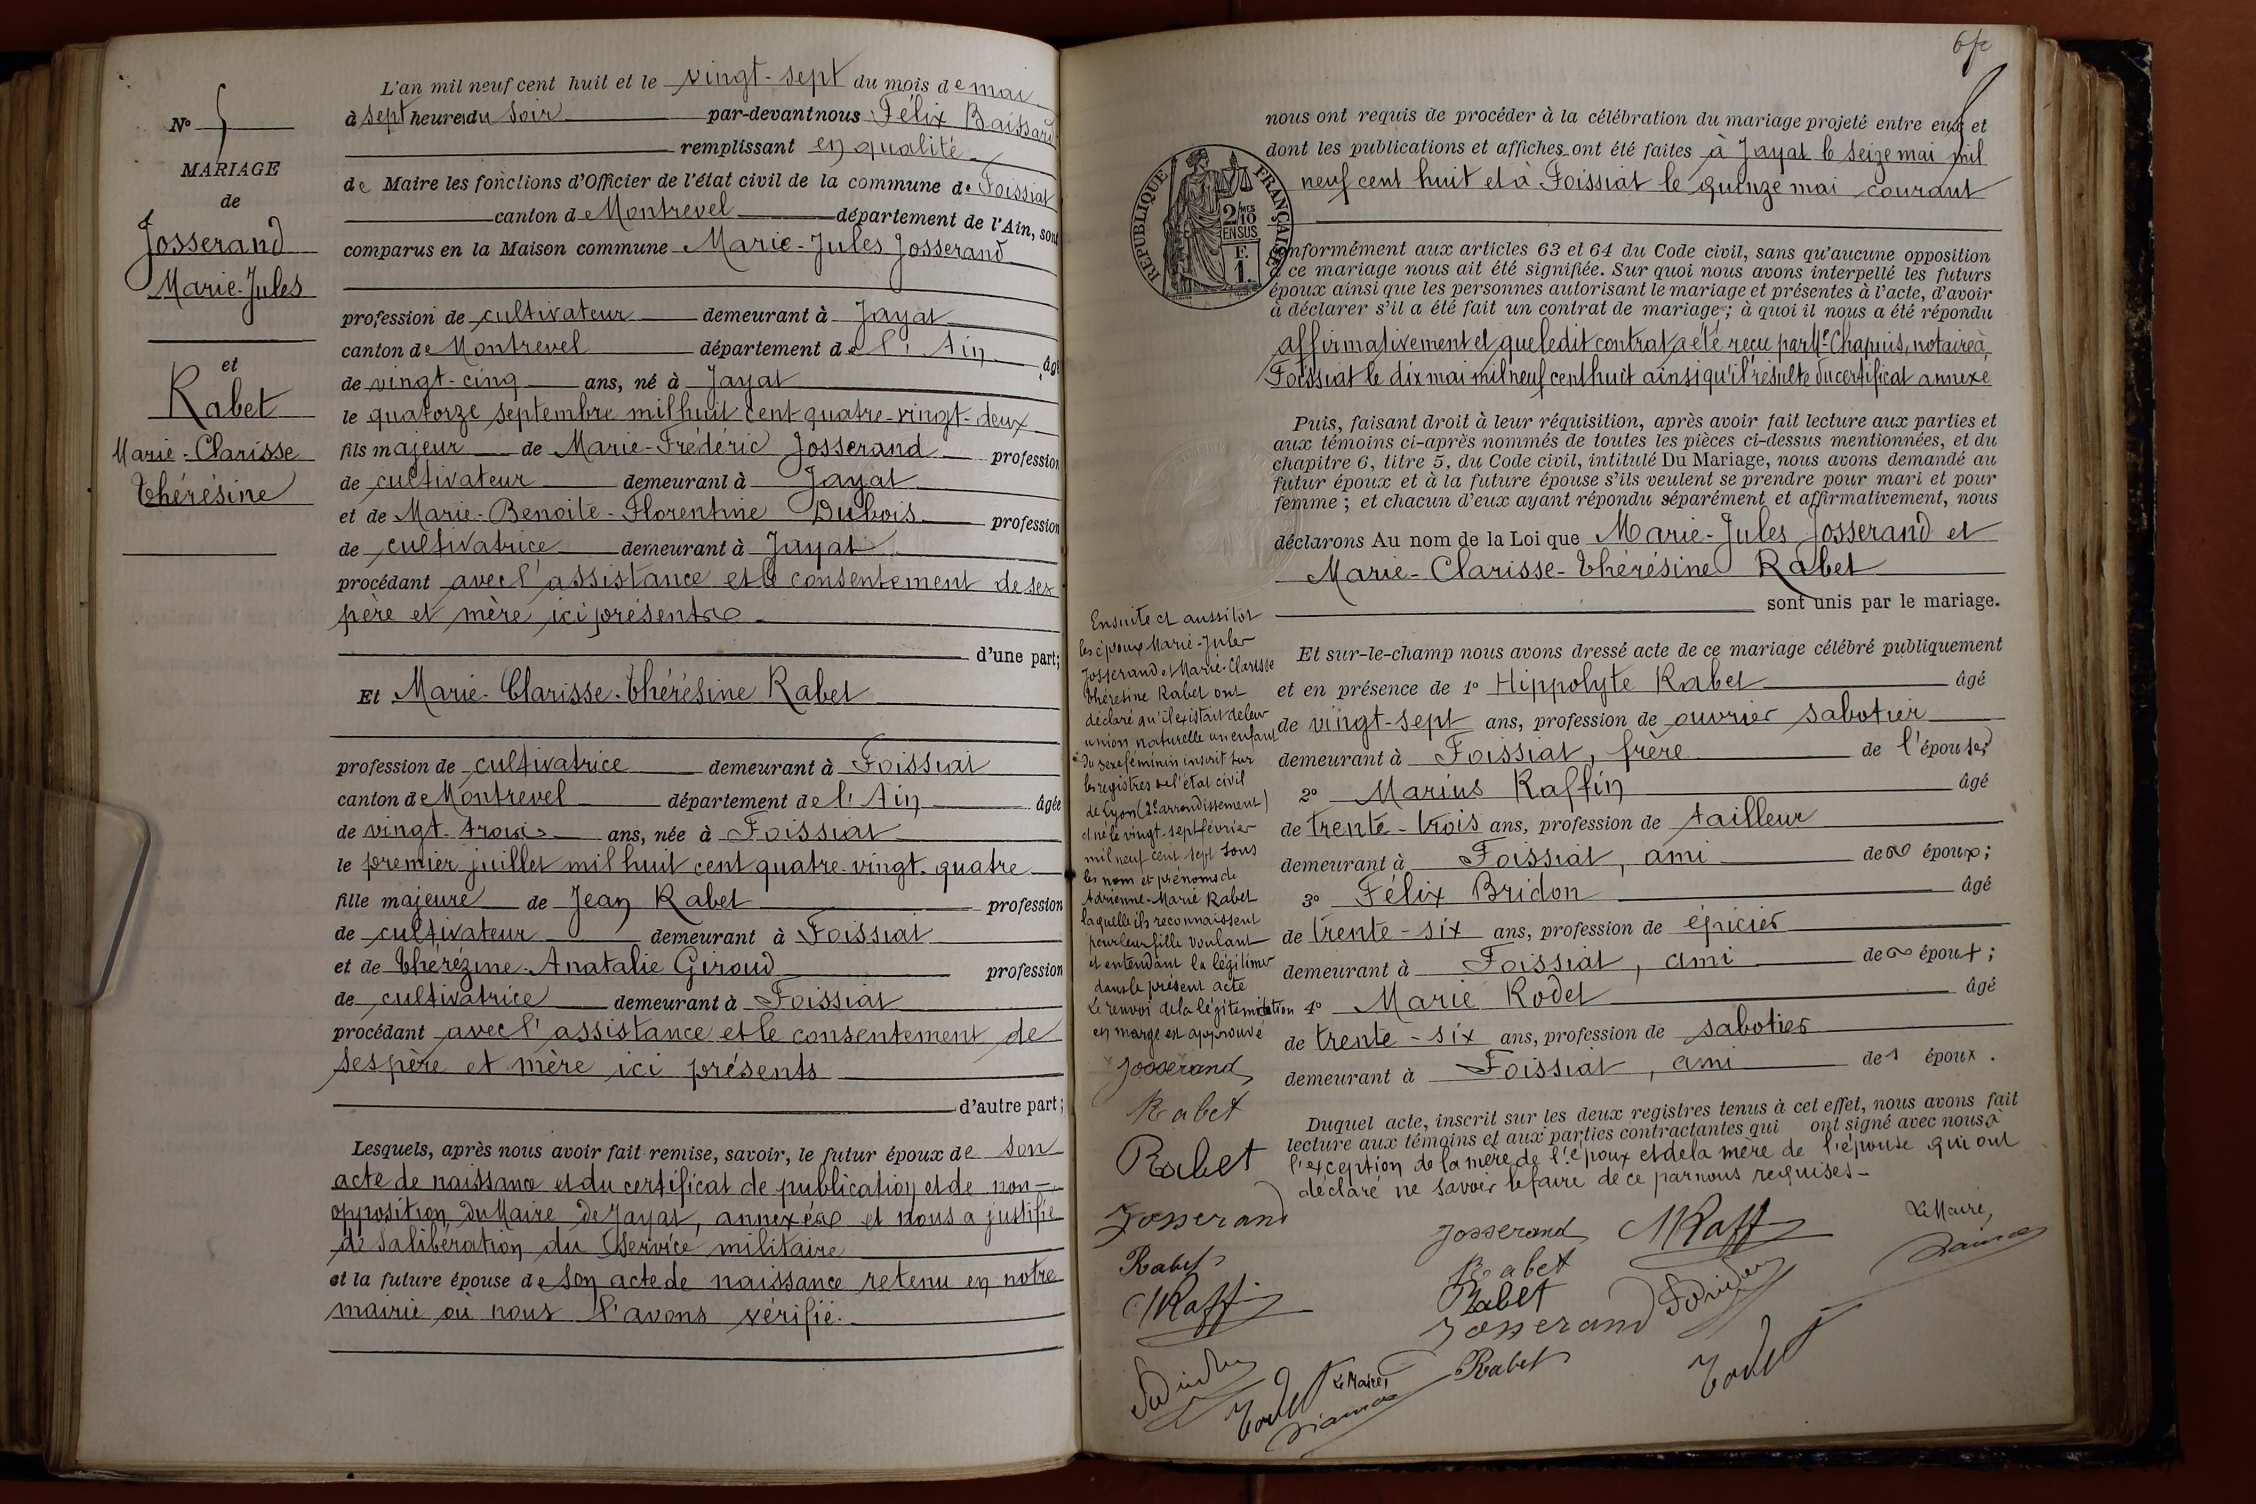 N° 5
MARIAGE
de
Josserand
Marie-Jules
et
Rabet
Marie-Clarisse
Thérésine
L'an mil neuf cent huit et le vingt-sept du mois de mai
à sept heures du soir par-devant nous Félix Baissard
remplissant en qualité
de Maire les fonctions d'Officier de l'état civil de la commune de Foissiat
canton de Montrevel département de l'Ain, sont
comparus en la Maison commune Marie-Jules Josserand
profession de cultivateur demeurant à Jayat
canton de Montrevel département de l'Ain âgé
de vingt-cinq ans, né à Jayat
le quatorze septembre mil huit cent quatre-vingt-deux
fils majeur de Marie-Frédéric Josserand profession
de cultivateur demeurant à Jayat
et de Marie-Benoite-Florentine Dubois profession
de cultivatrice demeurant à Jayat
procédant avec l'assistance et le consentement de ses
père et mère ici présents
d'une part;
Et Marie-Clarisse-Thérésine Rabet
profession de cultivatrice demeurant à Foissiat
canton de Montrevel département de l'Ain âgée
de vingt-trois ans, née à Foissiat
le premier juillet mil huit cent quatre-vingt-quatre
fille majeure de Jean Rabet profession
de cultivateur demeurant à Foissiat
et de Thérézine-Anatalie Giroud profession
de cultivatrice demeurant à Foissiat
procédant avec l'assistance et le consentement de
ses père et mère ici présents
d'autre part;
Lesquels, après nous avoir fait remise, savoir, le futur époux de son
acte de naissance et du certificat de publication et de non-
opposition du Maire de Jayat, annexés et nous a justifié
de sa libération du Service militaire
et la future épouse de son acte de naissance retenu en notre
mairie où nous l'avons vérifié.
nous ont requis de procéder à la célébration du mariage projeté entre eux et
dont les publications et affiches ont été faites à Jayat le seize mai mil
neuf cent huit et à Foissiat le quinze mai courant
RÉPUBLIQUE FRANÇAISE
2/10 MES
EN SUS
F.
1.
conformément aux articles 63 et 64 du Code civil, sans qu'aucune opposition
à ce mariage nous ait été signifiée. Sur quoi nous avons interpellé les futurs
époux ainsi que les personnes autorisant le mariage et présentes à l'acte, d'avoir
à déclarer s'il a été fait un contrat de mariage; à quoi il nous a été répondu
affirmativement et que ledit contrat a été reçu par Me Chapuis, notaire à
Foissiat le dix mai mil neuf cent huit ainsi qu'il résulte du certificat annexé
Puis, faisant droit à leur réquisition, après avoir fait lecture aux parties et
aux témoins ci-après nommés de toutes les pièces ci-dessus mentionnées, et du
chapitre 6, titre 5, du Code civil, intitulé Du Mariage, nous avons demandé au
futur époux et à la future épouse s'ils veulent se prendre pour mari et pour
femme; et chacun d'eux ayant répondu séparément et affirmativement, nous
déclarons Au nom de la Loi que Marie-Jules Josserand et
Marie-Clarisse-Thérésine Rabet
sont unis par le mariage.
Et sur-le-champ nous avons dressé acte de ce mariage célébré publiquement
et en présence de 1° Hippolyte Rabet âgé
de vingt-sept ans, profession de ouvrier sabotier
demeurant à Foissiat, frère de l'épouse;
2° Marius Raffin âgé
de trente-trois ans, profession de tailleur
demeurant à Foissiat, ami des époux;
3° Félix Bridon âgé
de trente-six ans, profession de épicier
demeurant à Foissiat, ami des époux;
4° Marie Rodet âgé
de trente-six ans, profession de sabotier
demeurant à Foissiat, ami des époux.
Duquel acte, inscrit sur les deux registres tenus à cet effet, nous avons fait
lecture aux témoins et aux parties contractantes qui ont signé avec nous à
l'exception de la mère de l'époux et de la mère de l'épouse qui ont
déclaré ne savoir le faire de ce par nous requises-
Ensuite et aussitôt
les époux Marie-Jules
Josserand et Marie-Clarisse
Thérésine Rabet ont
déclaré qu'il existait de leur
union naturelle un enfant
du sexe féminin inscrit sur
les registres de l'état civil
de Lyon (2e arrondissement)
et né le vingt-sept février
mil neuf cent sept sous
les nom et prénoms de
Adrienne-Marie Rabet
laquelle ils reconnaissent
pour leur fille voulant
et entendant la légitimer
dans le présent acte
Le renvoi de la légitimation
en marge est approuvé
Josserand
Rabet
Rabet
Josserand
Rabet
MRaff
Le Maire,
Josserand
MRaff
Le Maire,
Rabet
Rabet
Josserand
Rabet